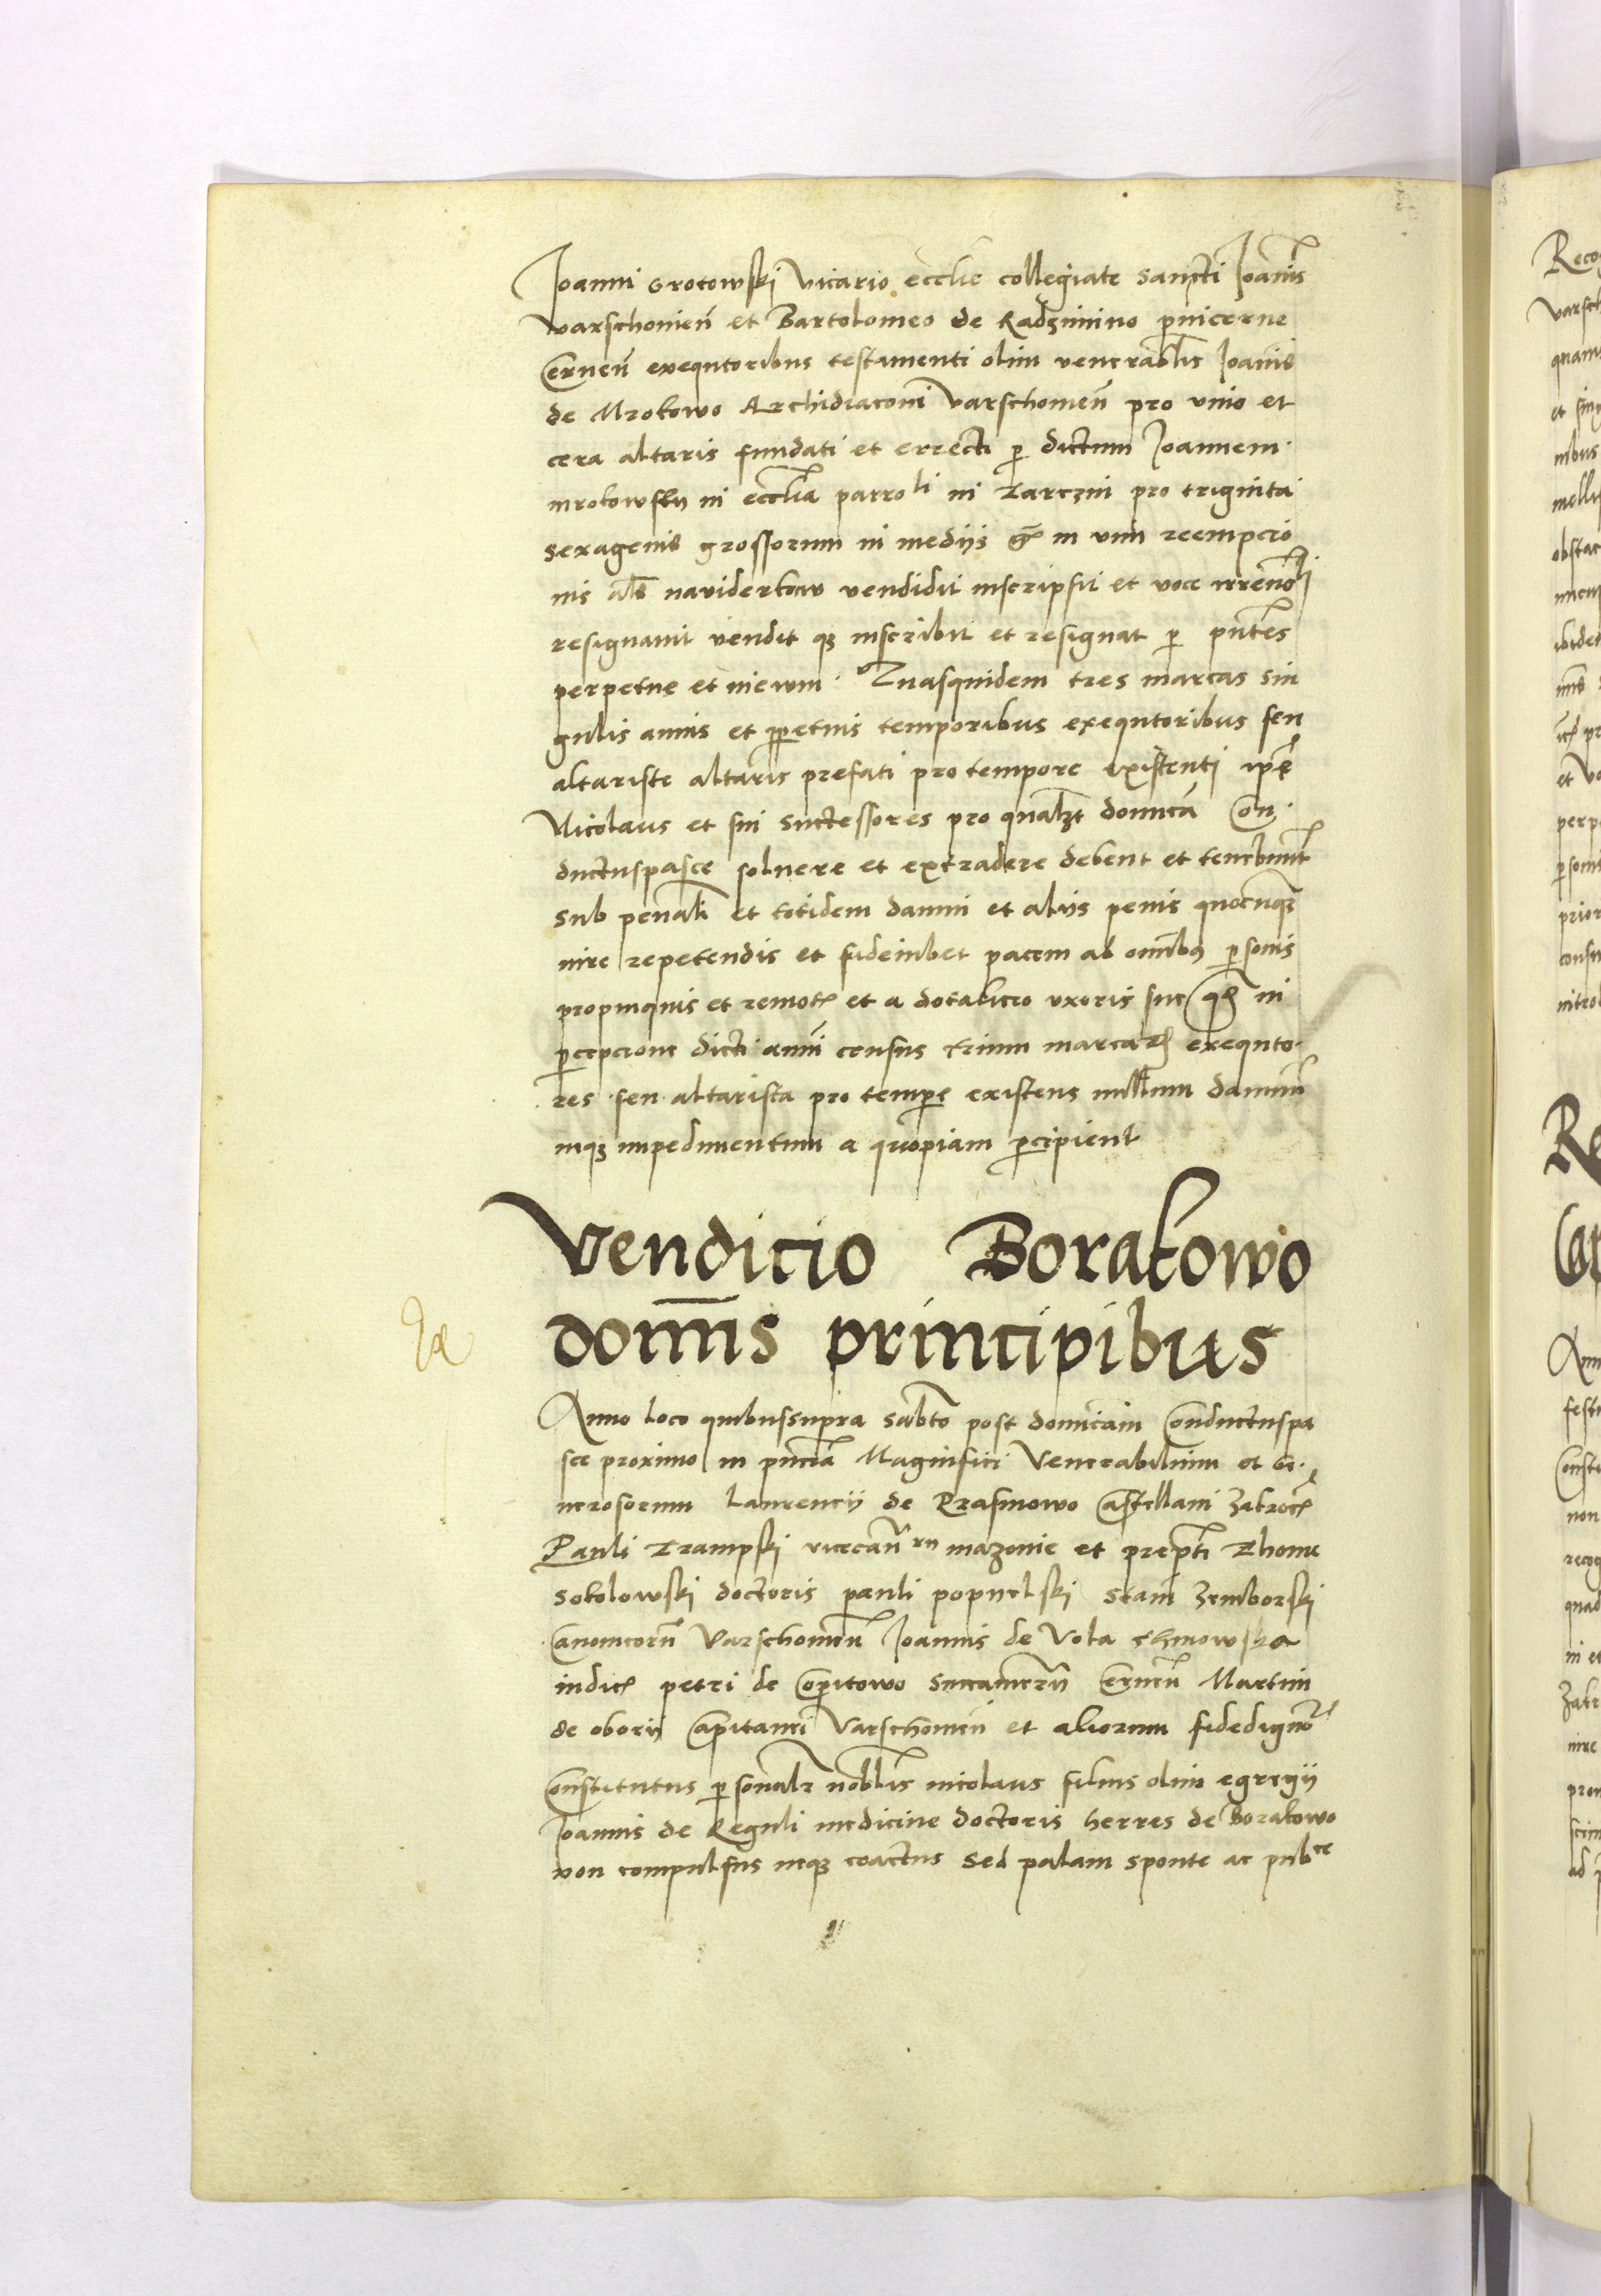 Joanni Grotowski vicario ecclie collegiate sancti Joanis
varschouien̄ et Bartolomeo de Radzimino pīncerne
Cernen̄ exequtoribus testamenti olim venerablis Joanis
de Mrokowo Archidiaconi varschouien̄ pro vino et
cera altaris fundati et errecti p̱ dictum Joannem
mrokowsky in ecclia parroli in Tarczin pro triginta
sexagenis grossorum in mediis gr̄ in vim reempcio
nis als̄ naviderkow vendidit inscripsit et voce irreuoli
resignauit vendit qȝ inscribit et resignat p̱ pn̄tes
perpetue et in ewm. Quasquidem tres marcas sin
gulis annis et p̱petuis temporibus exequtoribus seu
altariste altaris prefati pro tempore existenti ip̄e
Nicolaus et sui successores pro qualꝫt domīcā Con
ductuspasce soluere et extradere debent et tenebunt̄
sub penali et totidem damni et aliis penis quocūqꝫ
iure repetendis et fideiubet pacem ab omībꝫ p̱sonis
propinquis et remot̄ et a dotalicio vxoris sue qd̄ in
p̱cepcione dicti annī census trium marcarꝝ exequto
res seu altarista pro tempe existens nullum damnū
neqꝫ impedimentum a quopiam p̱cipient
Vendicio Borakowo
domīs principibus
Anno loco quibussupra sabto post domīcam Conductuspa
sce proximo in pn̄cia Magnifici Venerabilium et Ge
nerosorum Laurencij de Prasmowo Castellani Zakroc̄
Pauli Trampski vicecan̄rij mazouie et prepti Thome
Sokolowski doctoris pauli popyelski Stanī Zemborski
Canonicorū Varschouien̄ Joannis de Vola Chinowska
iudic̄ petri de Copitowo succamerrij Cernen̄ Martini
de obory Capitanei Varschouien̄ et aliorum fidedignor̄
Constitutus p̱sonalr nobblis nicolaus filius olim egregij
Joannis de Reguli medicine doctoris herres de Borakowo
non compulsus neqꝫ coactus sed palam sponte ac pubce